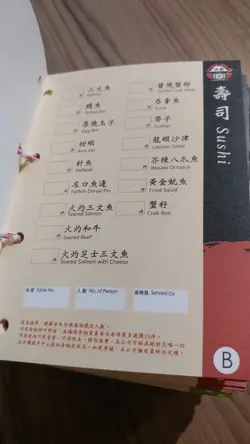 壽司 Sushi
三文魚
Salmon
鰻魚
厚燒玉子
Egg Rice
甜蝦
Ama ebi
針魚
Halfbeak
左口魚邊
Flatfish Dorsal Fin
火灼三文魚
Seared Salmon
火灼和牛
Seared Beef
火灼芝士三文魚
Seared Salmon with Cheese
醬燒蟹柳
吞拿魚
Tuna
帶子
Scallop
龍蝦沙律
Lobster Salad
芥辣八爪魚
Wasabi Octopus
黃金魷魚
Fried Squid
蟹籽
Crab Roe
枱號 Table No.
人數 No. of Person
服務員 Served by
B